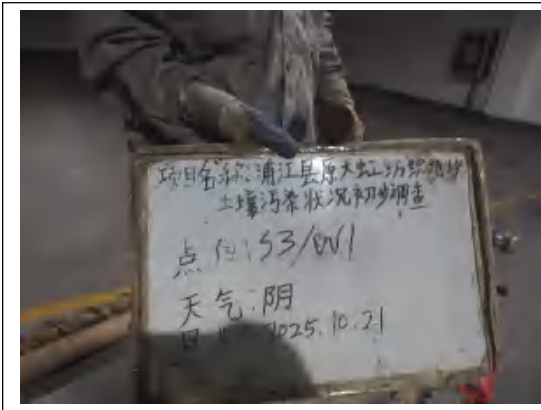 项目名称:浦江县原大虹纺织地块
土壤污染状况初步调查
点位:S3/W1
天气:阴
日期:2025.10.21